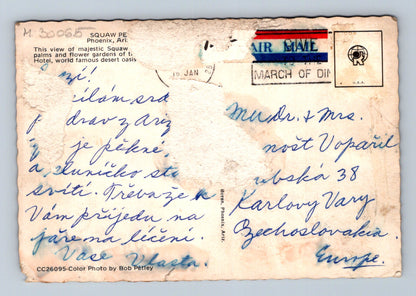 M 30065
SQUAW PE
Phoenix, Ari
This view of majestic Squaw
palms and flower gardens of t
Hotel, world famous desert oasis
AIR MAIL
19 JAN
MARCH OF DIM
zí!
sílám srd
zdrav z Ariz
je pěkné,
a sluníčko stá
svítí. Třeba zek
Vám přijedu na
jaře na léčení.
Vaše Vlasta.
MUDr. & Mrs.
nošt Vopařil
ubská 38
Karlovy Vary
Czechoslovakia
Europe.
Phoenix, Ariz.
CC26095-Color Photo by Bob Petley